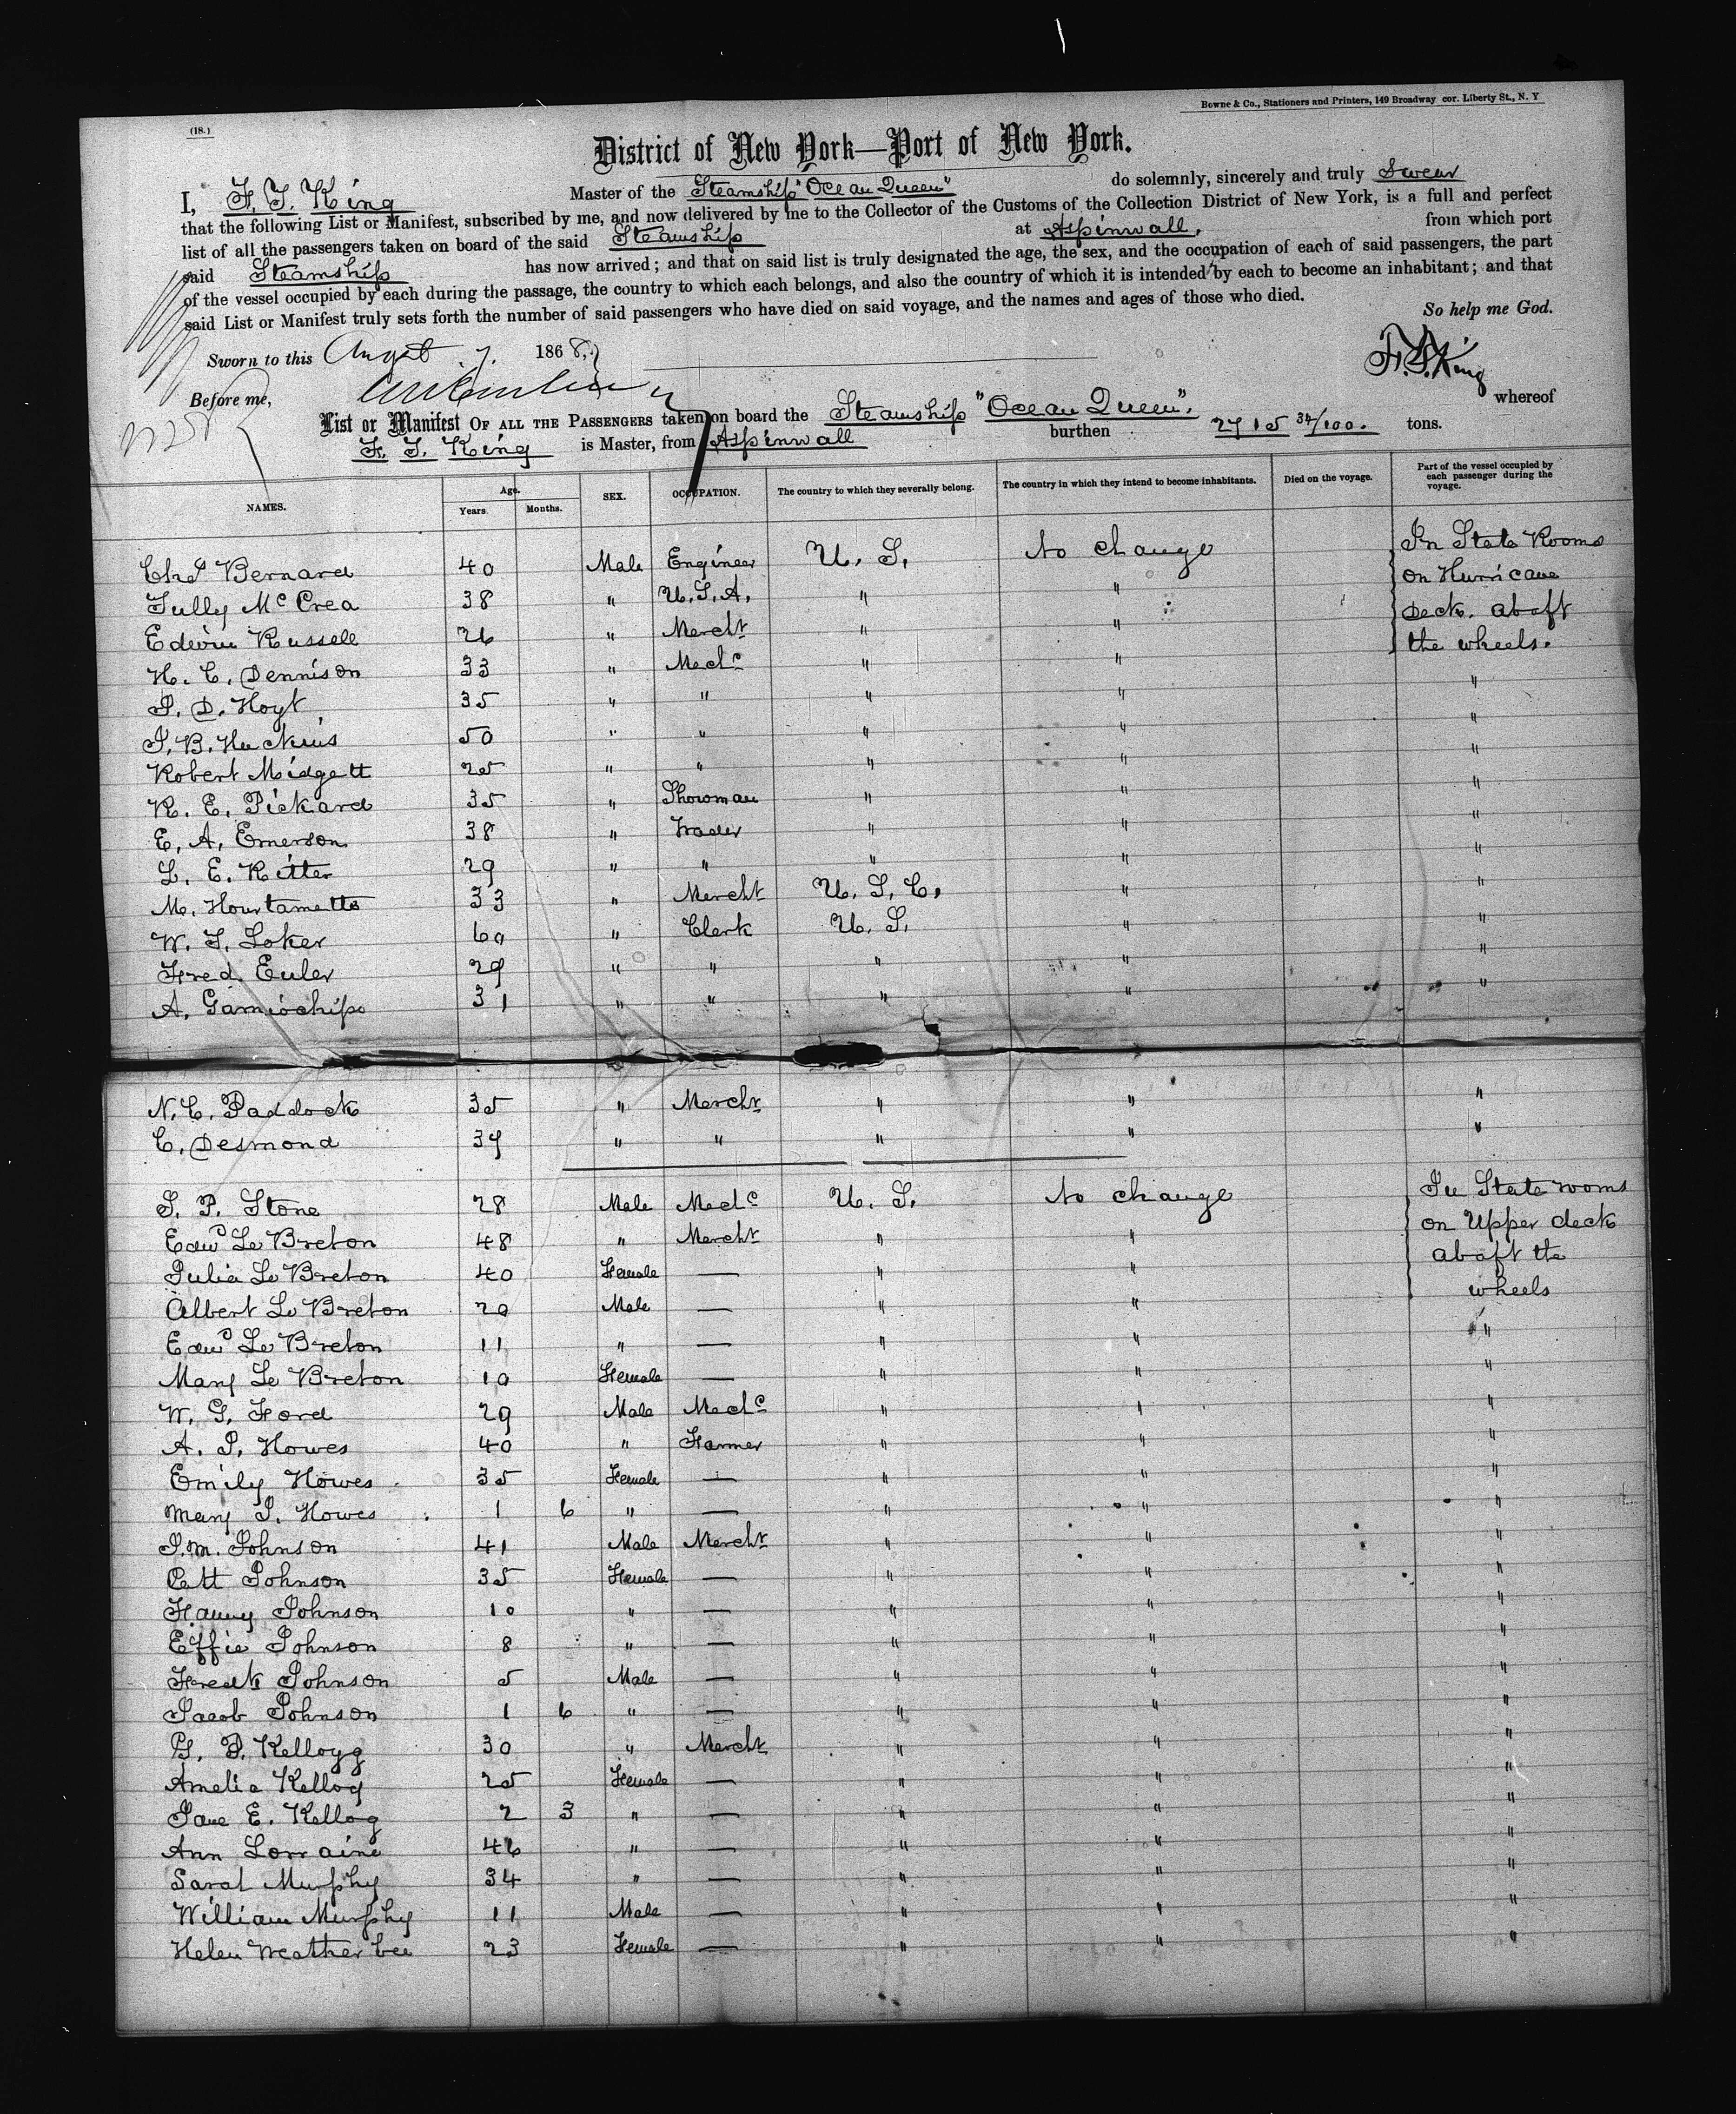 Bowne & Co., Stationers and Printers, 149 Broadway cor. Liberty St., N. Y
(18.)
District of New York—Port of New York.
I, F. T. King Master of the Steamship "Ocean Queen" do solemnly, sincerely and truly Swear
that the following List or Manifest, subscribed by me, and now delivered by me to the Collector of the Customs of the Collection District of New York, is a full and perfect
list of all the passengers taken on board of the said Steamship at Aspinwall, from which port
said Steamship has now arrived; and that on said list is truly designated the age, the sex, and the occupation of each of said passengers, the part
of the vessel occupied by each during the passage, the country to which each belongs, and also the country of which it is intended by each to become an inhabitant; and that
said List or Manifest truly sets forth the number of said passengers who have died on said voyage, and the names and ages of those who died.
So help me God.
Sworn to this August 7. 1868,
F. T. King
Before me,
whereof
List or Manifest OF ALL THE PASSENGERS taken on board the Steamship "Ocean Queen".
F. T. King is Master, from Aspinwall burthen 2715 34/100. tons.
NAMES. Age. Years. Months. SEX. OCCUPATION. The country to which they severally belong. The country in which they intend to become inhabitants. Died on the voyage. Part of the vessel occupied by each passenger during the voyage.
Chas Bernard 40 Male Engineer U. S. No change In State Rooms
Tully Mc Crea 38 " U.S.A. " " on Hurricane
Edwin Russell 26 " Mercht " " Deck. abaft
H. C. Dennison 33 " Mechc " " the wheels.
J. D. Hoyt 35 " " " " "
J. B. Huckins 50 " " " " "
Robert Midgett 25 " " " " "
R. E. Pickard 35 " Showman " " "
E. A. Emerson 38 " Trader " " "
L. E. Ritter 29 " " " " "
M. 33 " Mercht U. S. C. " "
W. T. Loker 60 " Clerk U. S. " "
Fred. Euler 29 " " " " "
A. 31 " " " " "
N. C. Paddock 35 " Mercht " " "
C. Desmond 39 " " " " "
S. P. Stone 28 Male Mechc U. S. No change In State rooms
Edwd Le Breton 48 " Mercht " " on Upper deck
Julia Le Breton 40 Female — " " abaft the
Albert Le Breton 20 Male — " " wheels
Edwd Le Breton 11 " — " " "
Mary Le Breton 10 Female — " " "
W. G. Ford 29 Male Mechc " " "
A. J. Howes 40 " Farmer " " "
Emily Howes 35 Female — " " "
Mary J. Howes 1 6 " — " " "
J. M. Johnson 41 Male Mercht " " "
Johnson 35 Female — " " "
Fanny Johnson 10 " — " " "
Effie Johnson 8 " — " " "
Fredk Johnson 5 Male — " " "
Jacob Johnson 1 6 " — " " "
G. P. Kellogg 30 " Mercht " " "
Amelia Kellog 25 Female — " " "
Jane E. Kellog 2 3 " — " " "
Ann Lorraine 46 " — " " "
Sarah Murphy 34 " — " " "
William Murphy 11 Male — " " "
Helen Weatherbee 23 Female — " " "